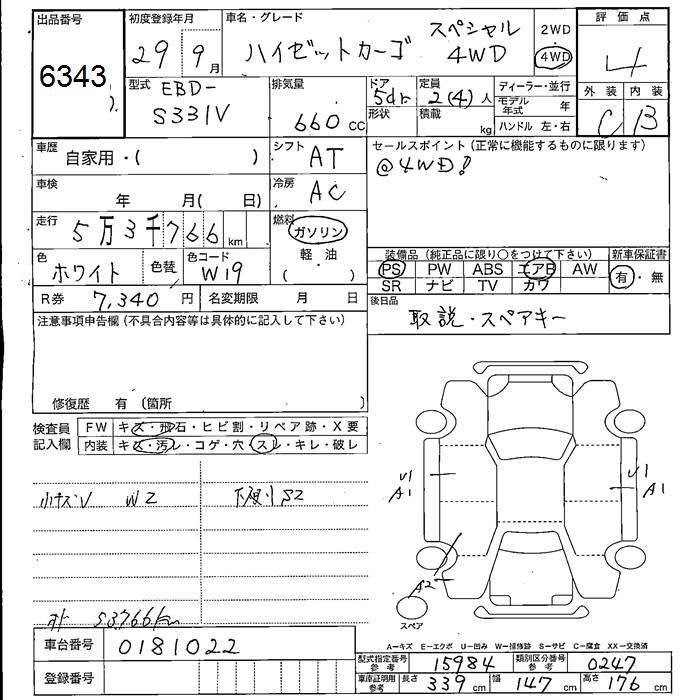 出品番号
6343
初度登録年月
29 9月
車名・グレード
ハイゼットカーゴ スペシャル 4WD
2WD
4WD
評価点
4
外装 内装
C B
型式
EBD-
S331V
排気量
660 CC
ドア
5dr
形状
定員
2(4)人
積載
kg
ディーラー・並行
モデル年式 年
ハンドル 左・右
車歴
自家用・( )
シフト
AT
セールスポイント(正常に機能するものに限ります)
◎4WD!
車検
年 月( 日)
冷房
AC
走行
5万3千766km
燃料
ガソリン
軽・油
( )
色
ホワイト
色替
色コード
W19
装備品(純正品に限り○をつけて下さい)
新車保証書
PS PW ABS エアB AW
有・無
SR ナビ TV カワ
R券 7,340円
名変期限 月 日
後日品
取説・スペアキー
注意事項申告欄(不具合内容等は具体的に記入して下さい)
修復歴 有(箇所
検査員
記入欄
FW キズ・飛石・ヒビ割・リペア跡・X要
内装 キズ・汚レ・コゲ・穴・スレ・キレ・破レ
小キズV W2
下廻りS2
53766km
U1
A1
U1
A1
A2
スペア
A-キズ E-エクボ U-凹み W-補修跡 S-サビ C-腐食 XX-交換済
車台番号 0181022
登録番号
型式指定番号
参考
15984
類別区分番号
参考
0247
車庫証明用
参考
長さ 339cm
幅 147cm
高さ 176cm